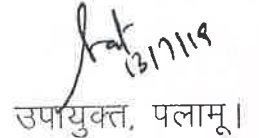 13/7/18
उपायुक्त, पलामू।